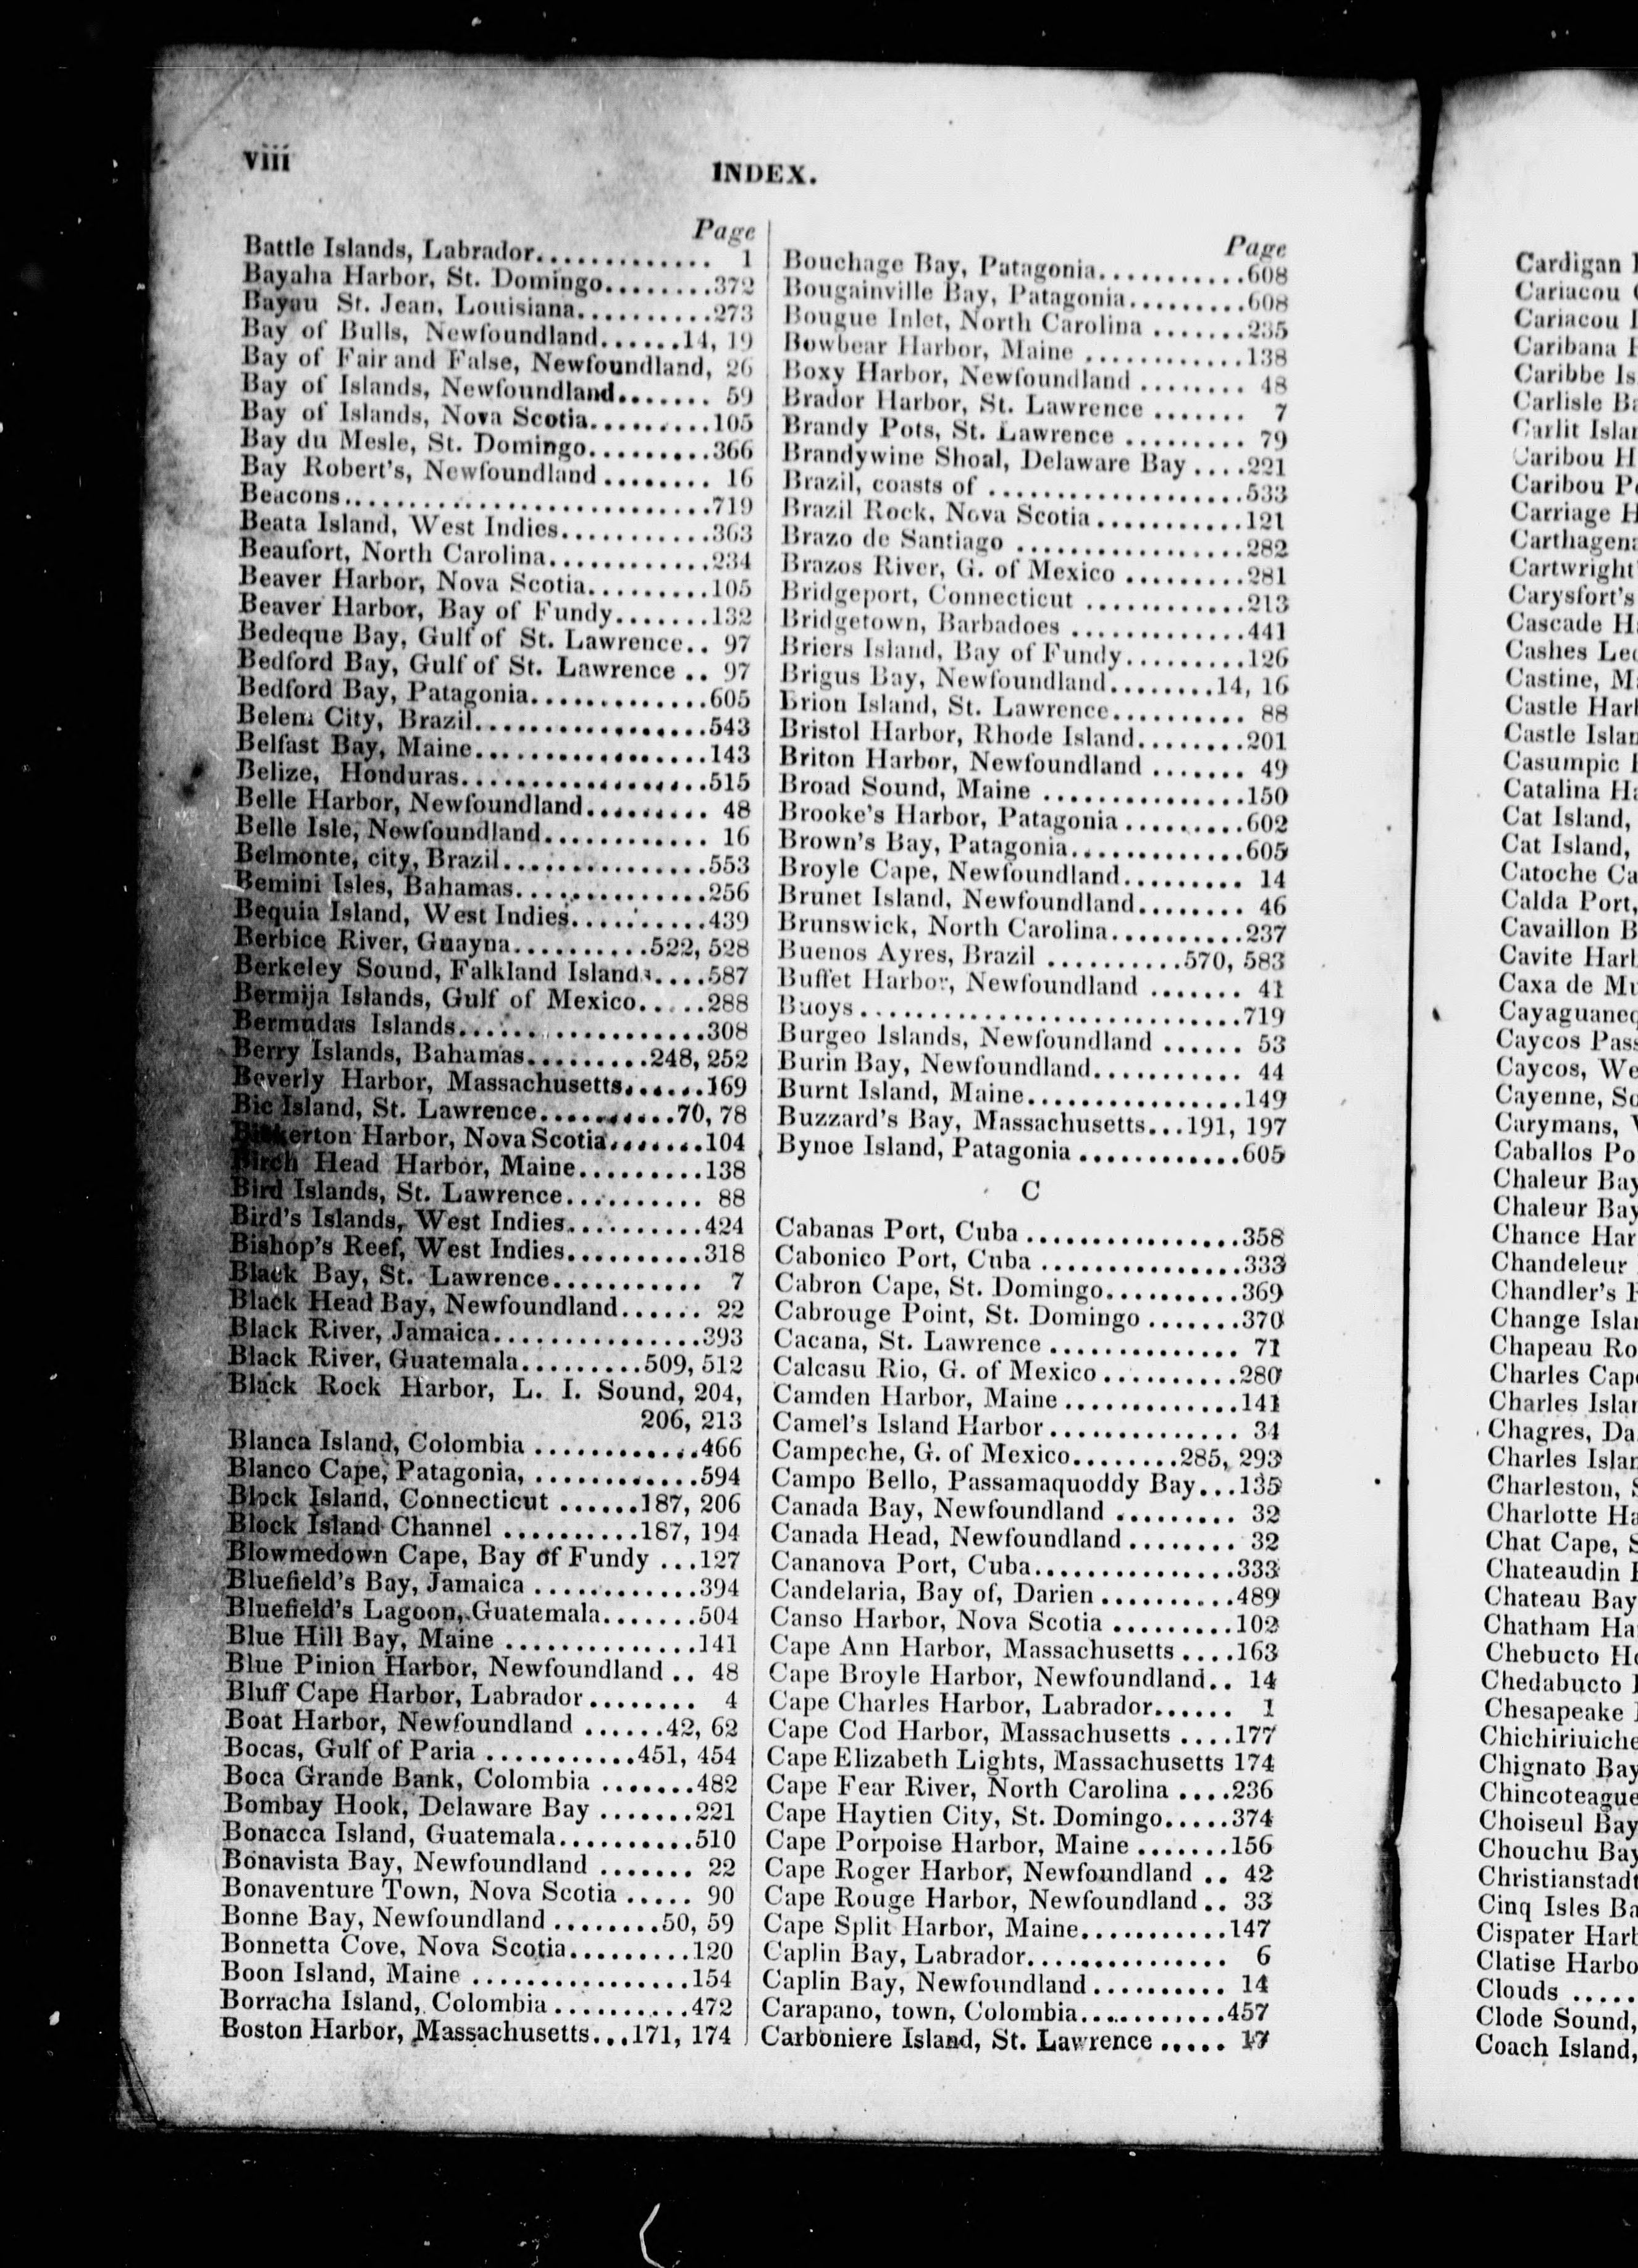 viii
INDEX.
Page
Battle Islands, Labrador.............. 1
Bayaha Harbor, St. Domingo........372
Bayau St. Jean, Louisiana..........273
Bay of Bulls, Newfoundland......14, 19
Bay of Fair and False, Newfoundland, 26
Bay of Islands, Newfoundland....... 59
Bay of Islands, Nova Scotia.........105
Bay du Mesle, St. Domingo.........366
Bay Robert's, Newfoundland ........ 16
Beacons............................719
Beata Island, West Indies...........363
Beaufort, North Carolina............234
Beaver Harbor, Nova Scotia.........105
Beaver Harbor, Bay of Fundy.......132
Bedeque Bay, Gulf of St. Lawrence.. 97
Bedford Bay, Gulf of St. Lawrence .. 97
Bedford Bay, Patagonia.............605
Belem City, Brazil.................543
Belfast Bay, Maine.................143
Belize, Honduras..................515
Belle Harbor, Newfoundland......... 48
Belle Isle, Newfoundland............ 16
Belmonte, city, Brazil...............553
Bemini Isles, Bahamas..............256
Bequia Island, West Indies..........439
Berbice River, Guayna..........522, 528
Berkeley Sound, Falkland Islands....587
Bermija Islands, Gulf of Mexico.....288
Bermudas Islands..................308
Berry Islands, Bahamas.........248, 252
Beverly Harbor, Massachusetts......169
Bic Island, St. Lawrence..........70, 78
Bickerton Harbor, Nova Scotia.......104
Birch Head Harbor, Maine.........138
Bird Islands, St. Lawrence.......... 88
Bird's Islands, West Indies..........424
Bishop's Reef, West Indies..........318
Black Bay, St. Lawrence........... 7
Black Head Bay, Newfoundland...... 22
Black River, Jamaica...............393
Black River, Guatemala.........509, 512
Black Rock Harbor, L. I. Sound, 204,
206, 213
Blanca Island, Colombia ............466
Blanco Cape, Patagonia, ............594
Block Island, Connecticut ......187, 206
Block Island Channel ..........187, 194
Blowmedown Cape, Bay of Fundy ...127
Bluefield's Bay, Jamaica ............394
Bluefield's Lagoon, Guatemala.......504
Blue Hill Bay, Maine ..............141
Blue Pinion Harbor, Newfoundland .. 48
Bluff Cape Harbor, Labrador........ 4
Boat Harbor, Newfoundland ......42, 62
Bocas, Gulf of Paria ...........451, 454
Boca Grande Bank, Colombia .......482
Bombay Hook, Delaware Bay .......221
Bonacca Island, Guatemala..........510
Bonavista Bay, Newfoundland ....... 22
Bonaventure Town, Nova Scotia ..... 90
Bonne Bay, Newfoundland ........50, 59
Bonnetta Cove, Nova Scotia.........120
Boon Island, Maine ................154
Borracha Island, Colombia ..........472
Boston Harbor, Massachusetts...171, 174
Page
Bouchage Bay, Patagonia...........608
Bougainville Bay, Patagonia.........608
Bougue Inlet, North Carolina .......235
Bowbear Harbor, Maine ............138
Boxy Harbor, Newfoundland ........ 48
Brador Harbor, St. Lawrence ....... 7
Brandy Pots, St. Lawrence ......... 79
Brandywine Shoal, Delaware Bay ....221
Brazil, coasts of ...................533
Brazil Rock, Nova Scotia...........121
Brazo de Santiago .................282
Brazos River, G. of Mexico .........281
Bridgeport, Connecticut ............213
Bridgetown, Barbadoes .............441
Briers Island, Bay of Fundy.........126
Brigus Bay, Newfoundland........14, 16
Brion Island, St. Lawrence.......... 88
Bristol Harbor, Rhode Island........201
Briton Harbor, Newfoundland ....... 49
Broad Sound, Maine ...............150
Brooke's Harbor, Patagonia.........602
Brown's Bay, Patagonia.............605
Broyle Cape, Newfoundland......... 14
Brunet Island, Newfoundland........ 46
Brunswick, North Carolina..........237
Buenos Ayres, Brazil ..........570, 583
Buffet Harbor, Newfoundland ....... 41
Buoys.............................719
Burgeo Islands, Newfoundland ...... 53
Burin Bay, Newfoundland........... 44
Burnt Island, Maine................149
Buzzard's Bay, Massachusetts...191, 197
Bynoe Island, Patagonia ............605
C
Cabanas Port, Cuba ................358
Cabonico Port, Cuba ...............333
Cabron Cape, St. Domingo..........369
Cabrouge Point, St. Domingo .......370
Cacana, St. Lawrence .............. 71
Calcasu Rio, G. of Mexico ..........280
Camden Harbor, Maine .............141
Camel's Island Harbor.............. 34
Campeche, G. of Mexico........285, 293
Campo Bello, Passamaquoddy Bay...135
Canada Bay, Newfoundland ......... 32
Canada Head, Newfoundland ........ 32
Cananova Port, Cuba...............333
Candelaria, Bay of, Darien ..........489
Canso Harbor, Nova Scotia .........102
Cape Ann Harbor, Massachusetts ....163
Cape Broyle Harbor, Newfoundland.. 14
Cape Charles Harbor, Labrador...... 1
Cape Cod Harbor, Massachusetts ....177
Cape Elizabeth Lights, Massachusetts 174
Cape Fear River, North Carolina ....236
Cape Haytien City, St. Domingo.....374
Cape Porpoise Harbor, Maine .......156
Cape Roger Harbor, Newfoundland .. 42
Cape Rouge Harbor, Newfoundland .. 33
Cape Split Harbor, Maine...........147
Caplin Bay, Labrador............... 6
Caplin Bay, Newfoundland .......... 14
Carapano, town, Colombia...........457
Carboniere Island, St. Lawrence ..... 17
Cardigan
Cariacou
Cariacou
Caribana
Caribbe Is
Carlisle
Carlit
Caribou H
Caribou
Carriage
Carthagena
Cartwright'
Carysfort's
Cascade
Cashes
Castine,
Castle
Castle
Casumpic
Catalina
Cat Island,
Cat Island,
Catoche
Calda Port,
Cavaillon
Cavite
Caxa de
Caycos
Caycos,
Cayenne,
Carymans,
Caballos
Chaleur Bay
Chaleur Bay
Chance
Chandeleur
Chandler's
Change
Chapeau
Charles
Charles
Chagres,
Charles
Charleston,
Charlotte
Chat Cape,
Chateaudin
Chateau Bay
Chatham
Chebucto
Chedabucto
Chesapeake
Chichiriuiche
Chignato Bay
Chincoteague
Choiseul Bay
Chouchu Bay
Christianstadt
Cinq Isles
Cispater
Clatise
Clouds .....
Clode Sound,
Coach Island,